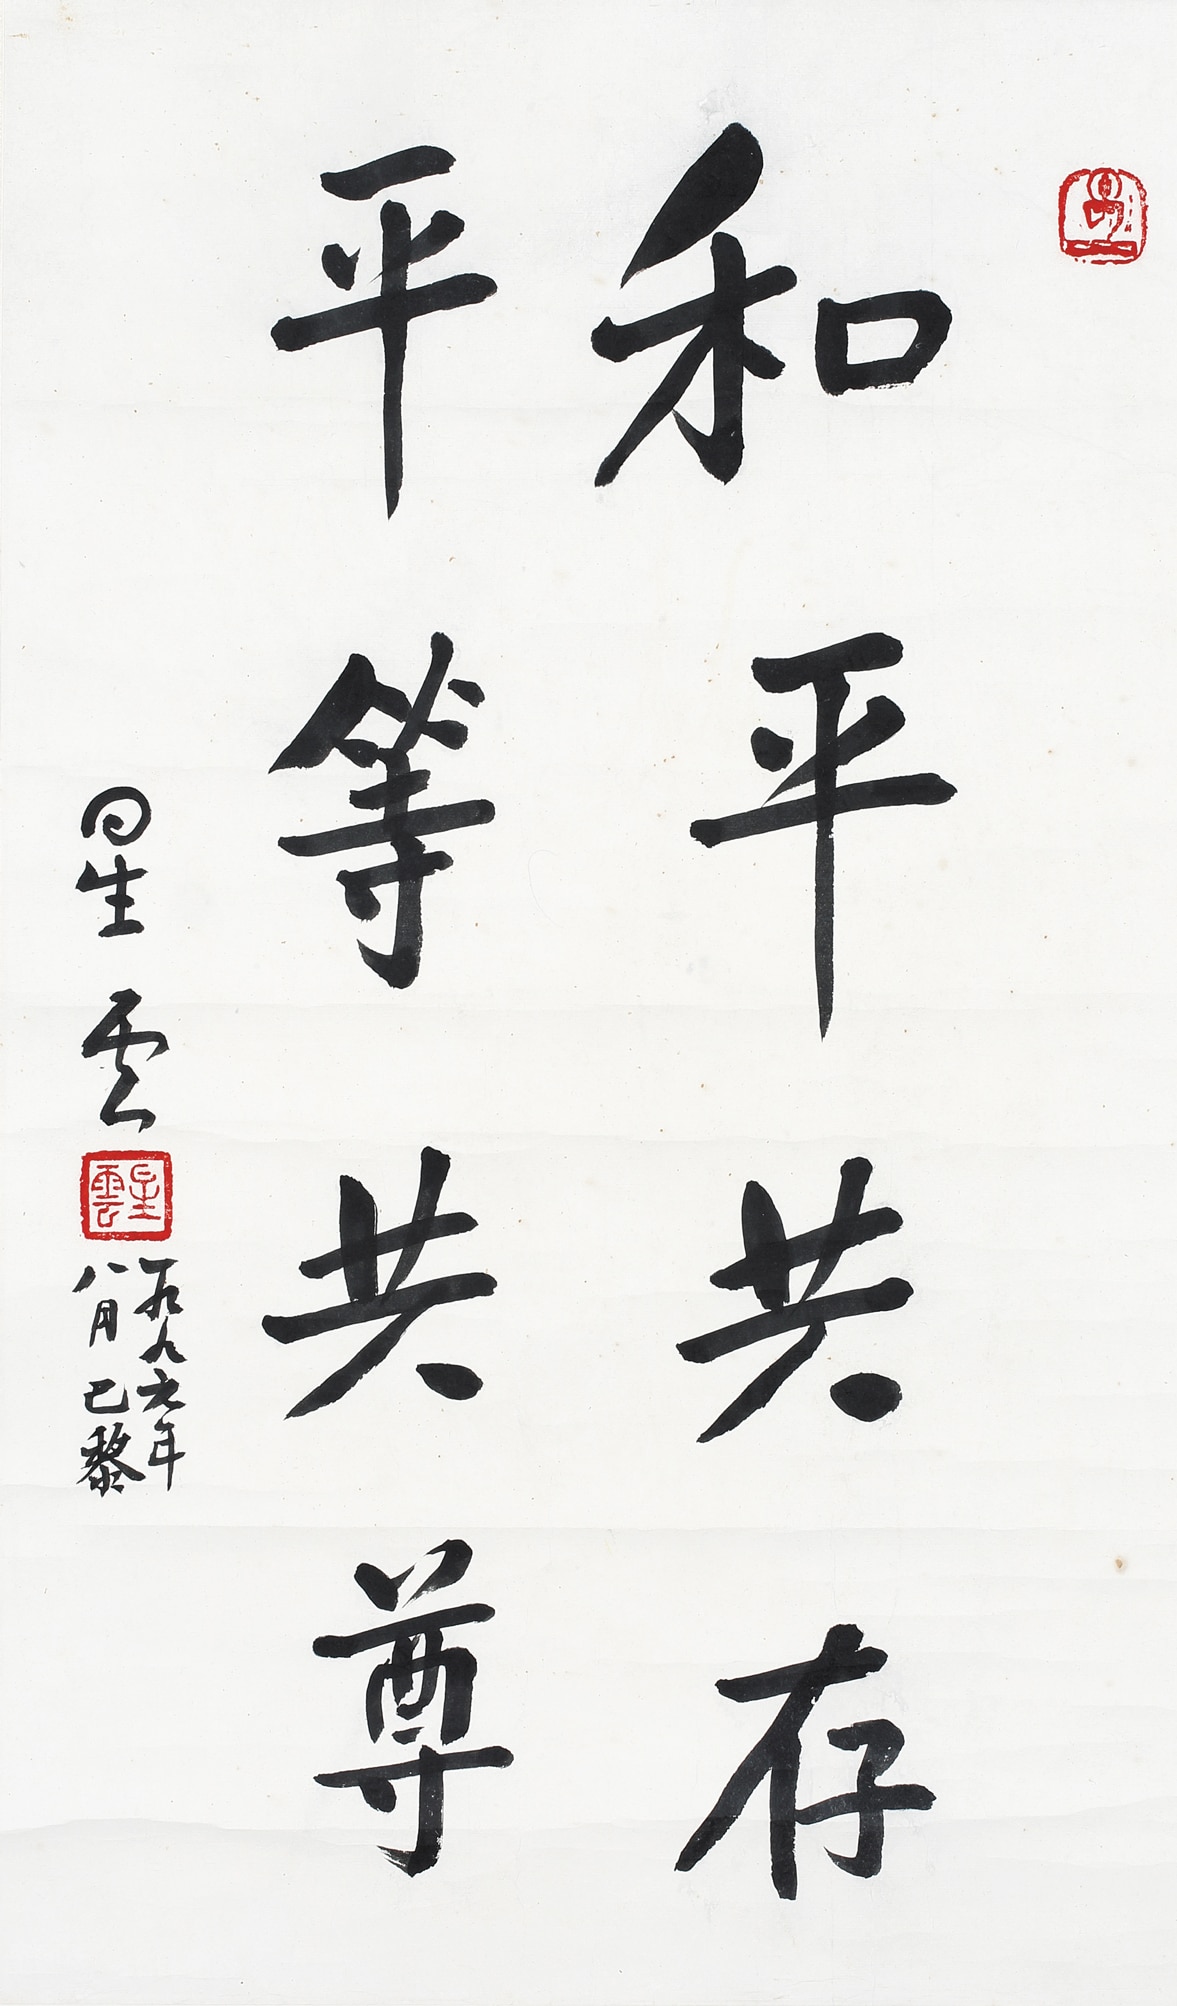 和平共存
平等共尊
星雲
星雲
一九九六年
八月巴黎